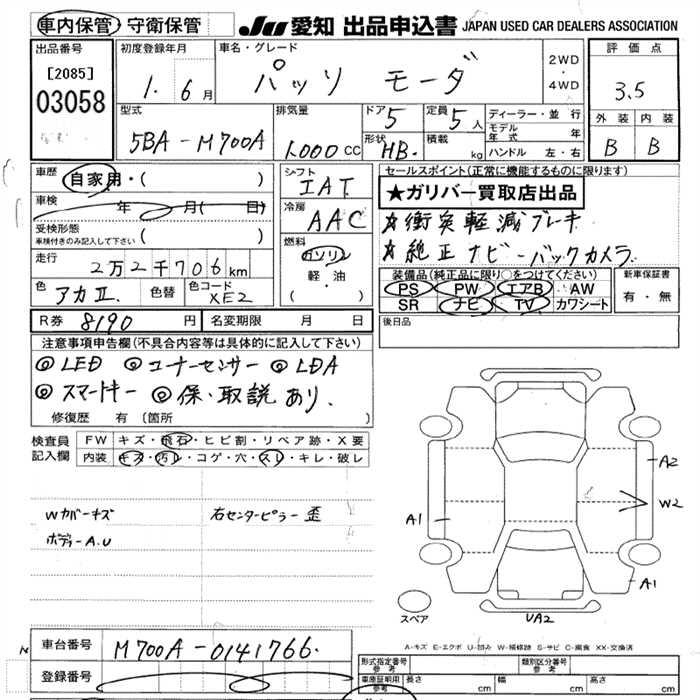 車内保管・守衛保管 JU 愛知 出品申込書 JAPAN USED CAR DEALERS ASSOCIATION
出品番号 [2085] 03058
初度登録年月 1. 6月
車名・グレード パッソ モーダ
2WD・4WD
評価点 3.5
外装 内装
B B
型式 5BA-M700A
排気量 1.000cc
ドア 5 形状 HB.
定員 5人 積載 kg
ディーラー・並行
モデル年式 年
ハンドル 左・右
車歴 自家用・( )
車検 年 月( 日)
受検形態 ( )
車検付きのみ記入して下さい
走行 2万2千706km
色 アカII. 色替 色コード XE2
シフト IAT
冷房 AAC
燃料 ガソリン 軽・油 ( )
セールスポイント(正常に機能するものに限ります)
★ガリバー買取店出品
☆衝突軽減ブレーキ
☆純正ナビ・バックカメラ
装備品(純正品に限り○をつけてください)
PS PW エアB AW
SR ナビ TV カワシート
新車保証書 有・無
R券 8190円 名変期限 月 日
後日品
注意事項申告欄(不具合内容等は具体的に記入して下さい)
◎LED ◎コーナーセンサー ◎LDA
◎スマートキー ◎保・取説あり.
修復歴 有 〔箇所 〕
検査員記入欄
FW キズ・飛石・ヒビ割・リペア跡・X要
内装 キズ・汚レ・コゲ・穴・スレ・キレ・破レ
Wカバーキズ 右センターピラー歪
ボディーA.U
A2
W2
A1
A1
UA2
スペア
A-キズ E-エクボ U-凹み W-補修跡 S-サビ C-腐食 XX-交換済
車台番号 M700A-0141766.
登録番号
形式指定番号 参考 類別区分番号 参考
車庫証明用 参考 長さ cm 幅 cm 高さ cm